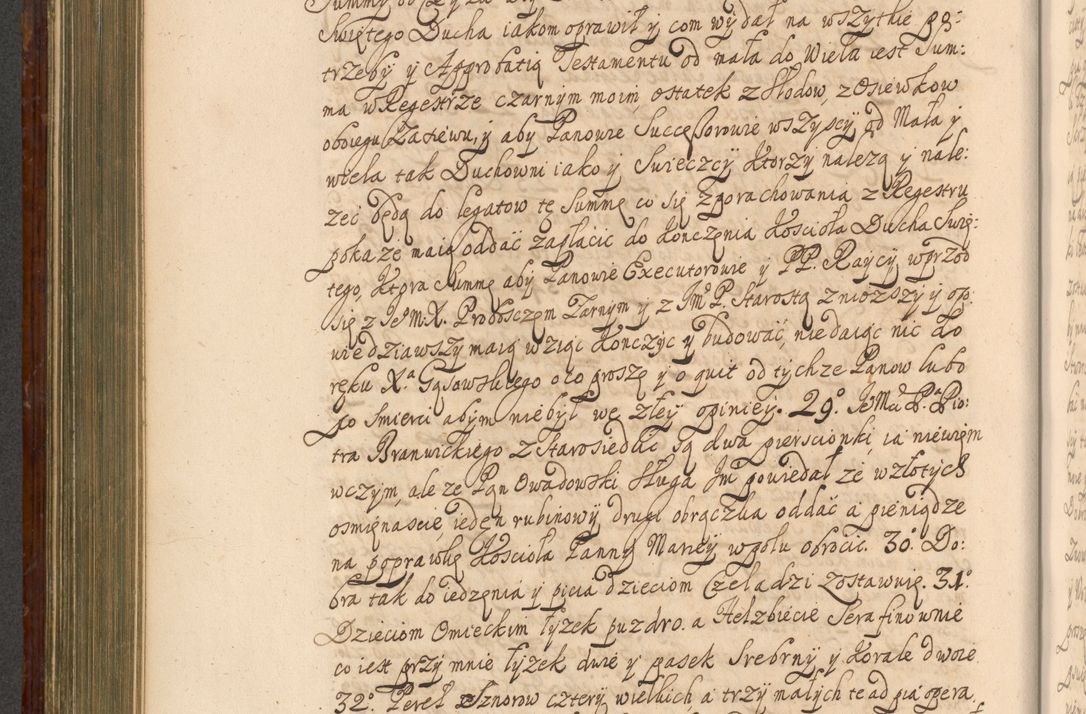 Swiętego Ducha iakom oprawił y com wydał na wszytkie po:
trzeby y Approbatią Testamentu od mała do Wiela iest Sum:
ma w Regestrze czarnym moim, ostatek z Słodow, z Osiewkow
obojego Zasiewu, y aby Panowie Successorowie wszyscy od Mała y
wiela tak Duchowni iako y Swieczcy ktorzy nalezą y nale:
zeć będą do legatow tę Summę co się z porachowania z Regestru
pokaze maią oddać zapłacić do konczenia Kościoła Ducha Swię:
tego, Ktora Summę aby Panowie Executorowie y PP. Raycy wprzod
się z Je M. X. Proboszczem Żarnym y z Jm P. Starostą zniozszy y op:
wiedziawszy maią wziąc Kończyc y budować, nie daiąc nic do
ręku X.a Gąsawskiego o to proszę y o quit od tychze Panow lubo
po smierci abym nie był we złey opiniey. 29.o Je Mci P. Pio:
tra Branwickiego z Starosiedlic są dwa pierscionki, ia niewiem
w czym, ale ze Pan Owadowski Sługa Jm powiedał ze w złotych
osmięnascie, ieden rubinowy drugi obrączka oddać a pieniądze
na poprawkę Kościoła Panny Mariey w polu obrocic. 30.o Do:
bra tak do iedzenia y picia dzieciom Czeladzi zostawuię. 31.o
Dzieciom Omieckim łyzek puzdro. a Helzbiecie Serafinownie
co iest przy mnie łyzek dwie y pasek Srebrny y Korale dwoie
32.o Pereł Sznorow cztery wielkich a trzy małych te ad pia opera